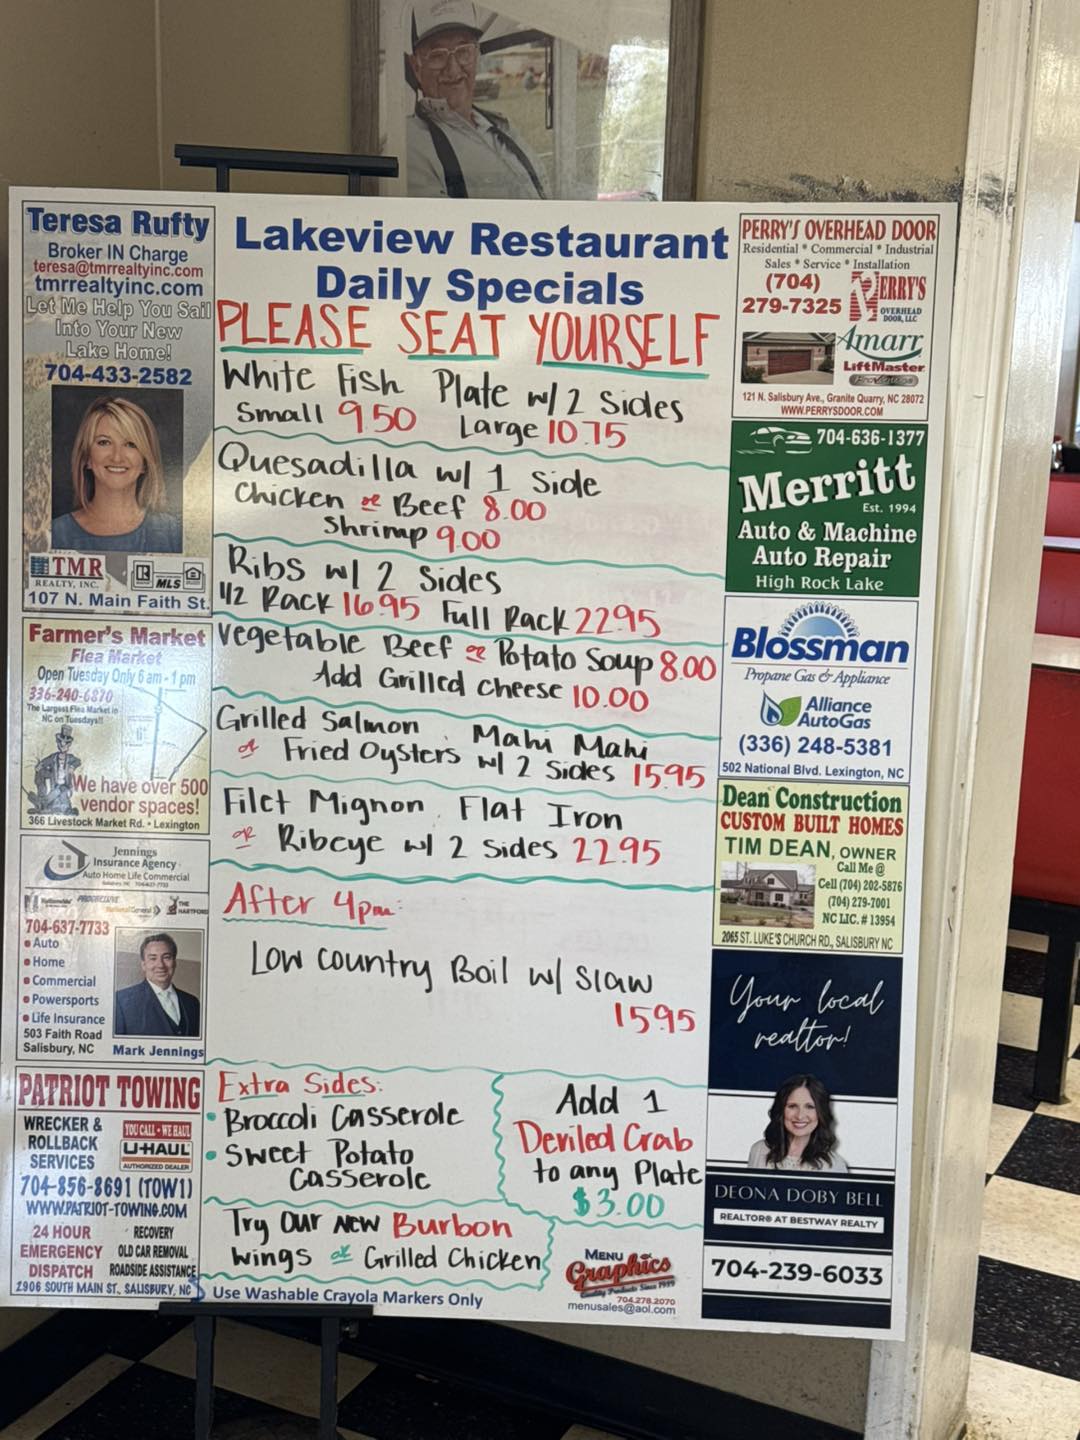 Teresa Rufty
Broker IN Charge
teresa@tmrrealtyinc.com
tmrrealtyinc.com
Let Me Help You Sail
Into Your New
Lake Home!
704-433-2582
TMR
REALTY, INC.
MLS
107 N. Main Faith St.
Farmer's Market
Flea Market
Open Tuesday Only 6 am - 1 pm
336-240-6870
The Largest Flea Market in
NC on Tuesdays!!
We have over 500
vendor spaces!
366 Livestock Market Rd. • Lexington
Jennings
Insurance Agency
Auto Home Life Commercial
Salisbury, NC 704-637-7733
Nationwide
PROGRESSIVE
NationalGeneral
THE
HARTFORD
704-637-7733
• Auto
• Home
• Commercial
• Powersports
• Life Insurance
503 Faith Road
Salisbury, NC
Mark Jennings
PATRIOT TOWING
WRECKER &
ROLLBACK
SERVICES
YOU CALL • WE HAUL
U-HAUL
AUTHORIZED DEALER
704-856-8691 (TOW1)
WWW.PATRIOT-TOWING.COM
24 HOUR
EMERGENCY
DISPATCH
RECOVERY
OLD CAR REMOVAL
ROADSIDE ASSISTANCE
2906 SOUTH MAIN ST., SALISBURY, NC
Lakeview Restaurant
Daily Specials
PLEASE SEAT YOURSELF
White Fish Plate w/ 2 Sides
Small 9.50 Large 10.75
Quesadilla w/ 1 Side
Chicken or Beef 8.00
Shrimp 9.00
Ribs w/ 2 Sides
1/2 Rack 16.95 Full Rack 22.95
Vegetable Beef or Potato Soup 8.00
Add Grilled Cheese 10.00
Grilled Salmon, Mahi Mahi
or Fried Oysters w/ 2 Sides 15.95
Filet Mignon, Flat Iron
or Ribeye w/ 2 Sides 22.95
After 4pm:
Low Country Boil w/ Slaw
15.95
Extra Sides:
• Broccoli Casserole
• Sweet Potato
Casserole
Add 1
Deviled Crab
to any Plate
$3.00
Try Our New Burbon
Wings or Grilled Chicken
Use Washable Crayola Markers Only
MENU
Graphics
Quality Products Since 1989
704.278.2070
menusales@aol.com
PERRY'S OVERHEAD DOOR
Residential * Commercial * Industrial
Sales * Service * Installation
(704)
279-7325
PERRY'S
OVERHEAD
DOOR, LLC
Amarr
LiftMaster
121 N. Salisbury Ave., Granite Quarry, NC 28072
WWW.PERRYSDOOR.COM
704-636-1377
Merritt
Est. 1994
Auto & Machine
Auto Repair
High Rock Lake
Blossman
Propane Gas & Appliance
Alliance
AutoGas
(336) 248-5381
502 National Blvd. Lexington, NC
Dean Construction
CUSTOM BUILT HOMES
TIM DEAN, OWNER
Call Me @
Cell (704) 202-5876
(704) 279-7001
NC LIC. # 13954
2065 ST. LUKE'S CHURCH RD., SALISBURY NC
Your local
realtor!
DEONA DOBY BELL
REALTOR® AT BESTWAY REALTY
704-239-6033